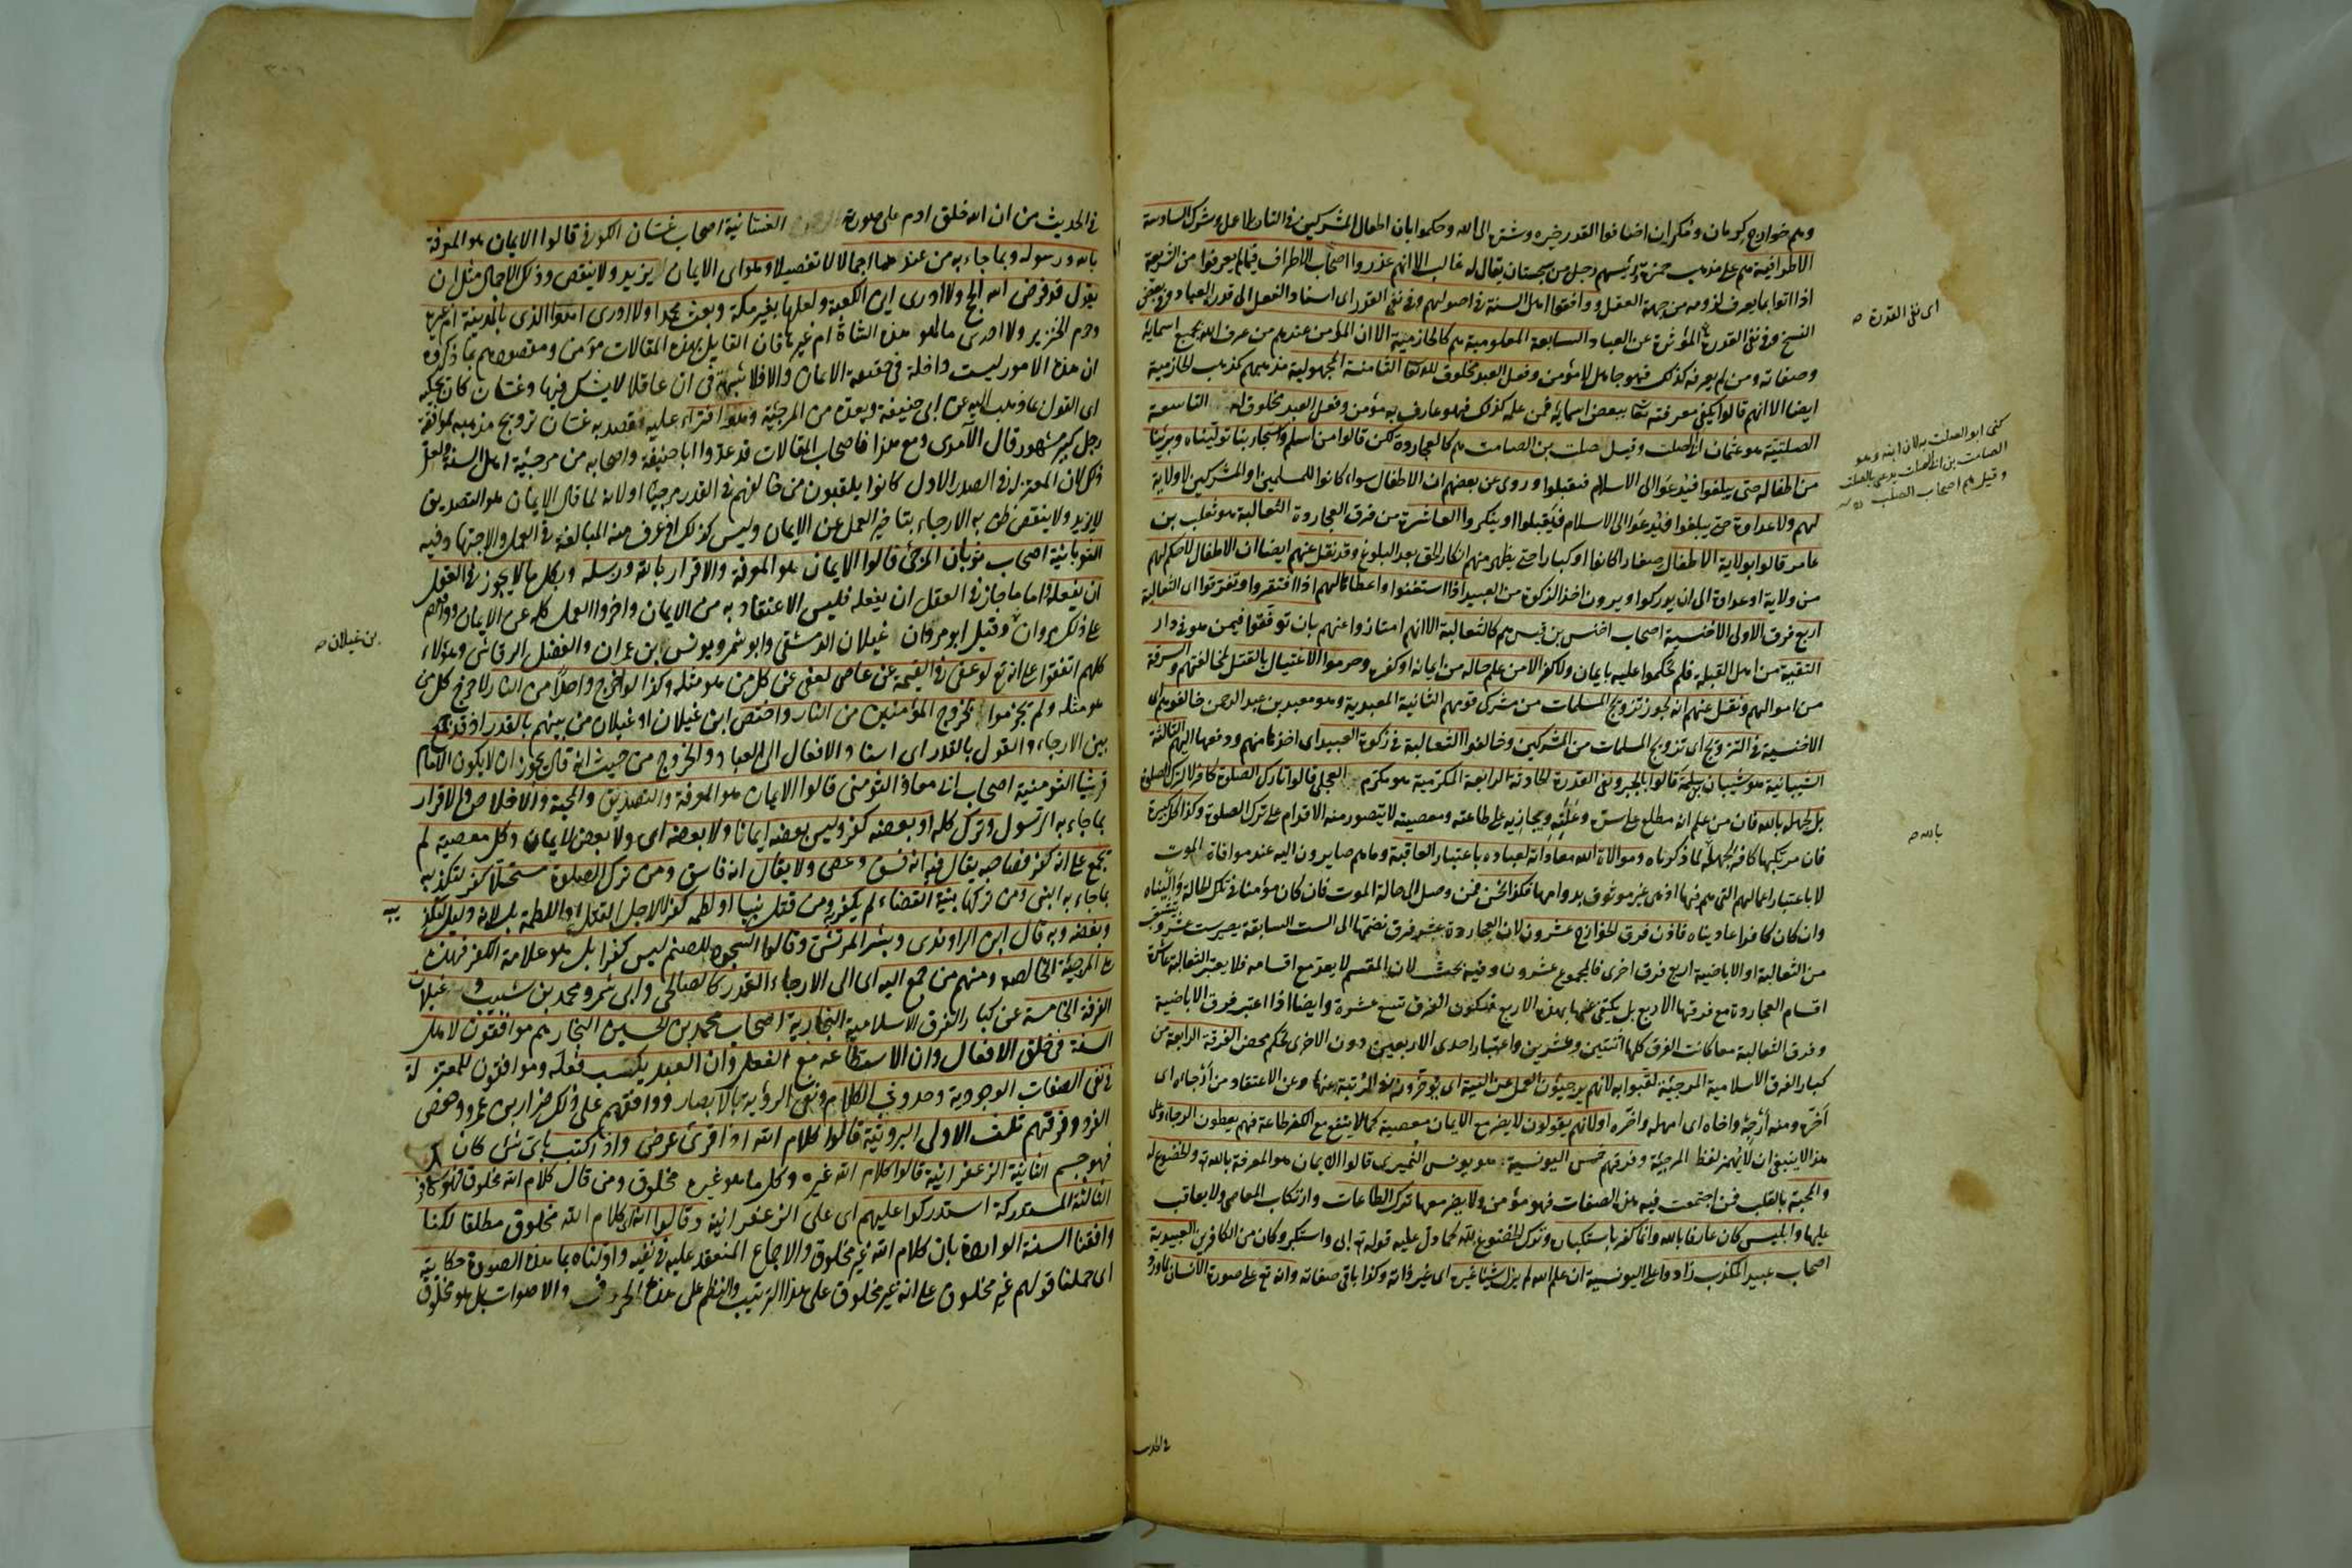 وهم خوارج كرمان ومكران اضافوا القدر خيره وشره الى الله وحكموا بان اطفال المشركين في النار بلا عمل وشرك السادسة
الاطرافية هم على مذهب حمزة ورئيسهم رجل من سجستان يقال له غالب الا انهم عذروا اصحاب الاطراف فيما لم يعرفوا من الشريعة
اذا اتوا بما يعرف لزومه من جهة العقل ووافقوا اهل السنة في اصولهم وفي نفي القدر اى اسناد الفعل الى قدر العباد وفي بعض
النسخ وفي نفي القدرة المؤثرة عن العباد السابعة المعلومية هم كالحازمية الا ان المؤمن عندهم من عرف الله بجميع اسمائه
وصفاته ومن لم يعرفه كذلك فهو جاهل لا مؤمن وفعل العبد مخلوق لله تعالى الثامنة المجهولية مذهبهم كمذهب الحازمية
ايضا الا انهم قالوا يكفي معرفته تعالى ببعض اسمائه فمن علمه كذلك فهو عارف به مؤمن وفعل العبد مخلوق له التاسعة
الصلتية هو عثمان بن ابى الصلت وقيل صلت بن الصامت هم كالعجاردة لكن قالوا من اسلم واستجار بنا توليناه وبرئنا
من اطفاله حتى يبلغوا فيدعوا الى الاسلام فيقبلوا وروى عن بعضهم ان الاطفال سواء كانوا للمسلمين او المشركين لا ولاية
لهم ولا عداوة حتى يبلغوا فيدعوا الى الاسلام فيقبلوا او ينكروا العاشرة من فرق العجاردة الثعالبة هو ثعلب بن
عامر قالوا بولاية الاطفال صغارا كانوا او كبارا حتى يظهر منهم انكار الحق بعد البلوغ وقد نقل عنهم ايضا ان الاطفال لا حكم لهم
من ولاية او عداوة الى ان يدركوا ويرون اخذ الزكوة من العبيد اذا استغنوا واعطائها لهم اذا افتقروا وتفرقوا اى الثعالبة
اربع فرق الاولى الاخنسية اصحاب اخنس بن قيس هم كالثعالبة الا انهم امتازوا عنهم بان توقفوا فيمن هو في دار
التقية من اهل القبلة فلم يحكموا عليه بايمان ولا كفر الا من علم حاله من ايمانه او كفره وحرموا الاغتيال بالقتل لمخالفيهم والسرقة
من اموالهم ونقل عنهم انه يجوز تزويج المسلمات من مشركى قومهم الثانية المعبدية وهو معبد بن عبد الرحمن خالفوهم اى
الاخنسية في التزويج اى تزويج المسلمات من المشركين وخالفوا الثعالبة في زكوة العبيد اى اخذها منهم ودفعها اليهم الثالثة
الشيبانية هو شيبان بن سلمة قالوا بالجبر ونفى القدرة الحادثة الرابعة المكرمية هو مكرم العجلى قالوا تارك الصلوة كافر لا لترك الصلوة
بل لجهله بالله فان من علم انه مطلع على سره وعلنه ويجازيه على طاعته ومعصيته لا يتصور منه الاقدام على ترك الصلوة وكذا كل كبيرة
فان مرتكبها كافر لجهله لما ذكرناه وموالاة الله ومعاداته لعباده باعتبار العاقبة وما هم صايرون اليه عند موافاة الموت
لا باعتبار اعمالهم التى هم فيها اذ هى غير موثوق بدوامها فكذا نحن فمن وصل الى حالة الموت فان كان مؤمنا في تلك الحالة واليناه
وان كان كافرا عاديناه فاذن فرق الخوارج عشرون لان العجاردة عشر فرق نضمها الى الست السابقة يصير ست عشرة
من الثعالبة او الاباضية اربع فرق اخرى فالمجموع عشرون وفيه بحث لان المقسم لا يعد مع اقسامه فلا يعتبر الثعالبة عاشرة
اقسام العجاردة مع فرقها الاربع بل يكتفى عنها بهذه الاربع فيكون الفرق تسع عشرة وايضا اذا اعتبر فرق الاباضية
وفرق الثعالبة معا كانت الفرق كلها اثنتين وعشرين واعتبار احدى الاربعين دون الاخرى تحكم محض الفرقة الرابعة من
كبار الفرق الاسلامية المرجئة لقبوا به لانهم يرجئون العمل عن النية اى يؤخرونه في الرتبة عنها وعن الاعتقاد من ارجاه اى
اخره ومنه ارجه واخاه اى امهله واخره او لانهم يقولون لا يضر مع الايمان معصية كما لا ينفع مع الكفر طاعة فهم يعطون الرجاء وعلى
هذا لا ينبغى ان لا يهمز لفظ المرجئة وفرقهم خمس اليونسية هو يونس النميرى قالوا الايمان هو المعرفة بالله والخضوع له
والمحبة بالقلب فمن اجتمعت فيه هذه الصفات فهو مؤمن ولا يضر معها ترك الطاعات وارتكاب المعاصى ولا يعاقب
عليها وابليس كان عارفا بالله وانما كفر باستكباره وترك الخضوع لله كما دل عليه قوله تع ابى واستكبر وكان من الكافرين العبيدية
اصحاب عبيد المكذب زادوا على اليونسية ان علم الله لم يزل شيئا غيره اى غير ذاته وكذا باقى صفاته وانه تع على صورة الانسان لما ورد
اى نفى القدرة صح
كنى ابو الصلت به لان ابنه وهو
الصامت بن ابى الصلت يدعى بالصلت
وقيل هم اصحاب الصلت
بالله صح
في الحديث
في الحديث من ان الله خلق ادم على صورة الغسانية اصحاب غسان الكوفى قالوا الايمان هو المعرفة
بالله ورسوله وبما جاء به من عندهما اجمالا لا تفصيلا وهو اى الايمان يزيد ولا ينقص وذلك الاجمال مثل ان
يقول قد فرض الله الحج ولا ادرى اين الكعبة ولعلها بغير مكة وبعث محمدا ولا ادرى اهو الذى بالمدينة ام غيره
وحرم الخنزير ولا ادرى ما هو هذه الشاة ام غيرها فان القايل بهذه المقالات مؤمن ومقصودهم بما ذكروه
ان هذه الامور ليست داخلة في حقيقة الايمان والا فلا شبهة في ان عاقلا لا يشك فيها وغسان كان يحكيه
اى القول بما ذهب اليه عن ابى حنيفة ويعده من المرجئة وهو افتراء عليه قصد به غسان ترويج مذهبه بموافقة
رجل كبير مشهور قال الآمدى ومع هذا فاصحاب المقالات قد عدوا ابا حنيفة واصحابه من مرجئة اهل السنة ولعل
ذلك لان المعتزلة في الصدر الاول كانوا يلقبون من خالفهم في القدر مرجئا او لانه لما قال الايمان هو التصديق
لا يزيد ولا ينقص ظن به الارجاء بتاخير العمل عن الايمان وليس كذلك اذ عرف منه المبالغة في العمل والاجتهاد فيه
الثوبانية اصحاب ثوبان المرجئ قالوا الايمان هو المعرفة والاقرار بالله ورسله وبكل ما لا يجوز في العقل
ان يفعله واما ما جاز في العقل ان يفعله فليس الاعتقاد به من الايمان واخروا العمل كله عن الايمان ووافقهم
على ذلك مروان وقيل ابو مروان غيلان الدمشقى وابو شمر ويونس ابن عمران والفضل الرقاشى وهؤلاء
كلهم اتفقوا على انه تع لو عفى في القيمة عن عاص لعفى عن كل من هو مثله وكذا لو اخرج واحدا من النار لاخرج كل من
هو مثله ولم يجزموا بخروج المؤمنين من النار واختص ابن غيلان او غيلان من بينهم بالقدر اذ قد جمع
بين الارجاء والقول بالقدر اى اسناد الافعال الى العباد والخروج من حيث انه قال يجوز ان لا يكون الامام
قرشيا الثومنية اصحاب ابى معاذ الثومنى قالوا الايمان هو المعرفة والتصديق والمحبة والاخلاص والاقرار
بما جاء به الرسول وترك كله او بعضه كفر وليس بعضه ايمانا ولا بعضه اى ولا بعض الايمان وكل معصية لم
يجمع على انه كفر فصاحبه يقال فيه انه فسق وعصى ولا يقال انه فاسق ومن ترك الصلوة مستحلا كفر لتكذيبه
بما جاء به النبى ومن تركها بنية القضاء لم يكفر ومن قتل نبيا او لطمه كفر لا لاجل القتل او اللطمة بل لانه دليل لتكذيبه
وبغضه وبه قال ابن الراوندى وبشر المرتسى وقالوا السجود للصنم ليس كفرا بل هو علامة الكفر فهذه
هى المرجئة الخالصة ومنهم من جمع اليه اى الى الارجاء القدر كالصالحى وابى شمر ومحمد بن شبيب وغيلان
الفرقة الخامسة من كبار الفرق الاسلامية النجارية اصحاب محمد بن الحسين النجار هم موافقون لاهل
السنة في خلق الافعال وان الاستطاعة مع الفعل وان العبد يكتسب فعله وموافقون للمعتزلة
في نفى الصفات الوجودية وحدوث الكلام ونفى الرؤية بالابصار ووافقهم على ذلك ضرار بن عمرو وحفص
الفرد وفرقهم ثلث الاولى البرغوثية قالوا كلام الله اذا قرئ عرض واذا كتب باى شئ كان
فهو جسم الثانية الزعفرانية قالوا كلام الله غيره وكل ما هو غيره مخلوق ومن قال كلام الله مخلوق فهو كافر
الثالثة المستدركة استدركوا عليهم اى على الزعفرانية وقالوا انه اى كلام الله مخلوق مطلقا لكنا
وافقنا السنة الواردة بان كلام الله غير مخلوق والاجماع المنعقد عليه في نفيه واولناه بما هذه الصورة حكايته
اى حملنا قولهم غير مخلوق على انه غير مخلوق على هذا الترتيب والنظم على هذه الحروف والاصوات بل هو مخلوق
بن غيلان صح